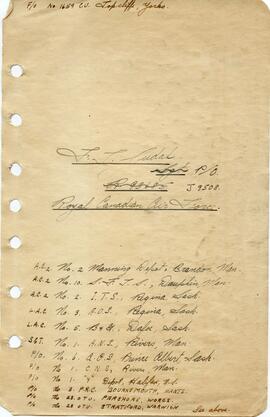 F/O No 1659 C.U. Topcliffe, Yorks.
Sgt. P/O
J 9508.
Royal Canadian Air Force
A.C.2 No. 2 Manning Depot, Brandon, Man.
A.C.2 No. 10. S.F.T.S., Dauphin, Man.
A.C.2 No. 2 I.T.S., Regina Sask.
L.A.C. No. 3. A.O.S., Regina, Sask.
L.A.C. No. 5. B&G, Dafoe, Sask.
SGT. No. 1. A.N.S., Rivers Man.
P/O. No. 6. A.O.S. Prince Albert Sask.
P/O No. 1. C.N.S., Rivers, Man.
P/O No. 1. Depot, Halifax, N.S.
P/O No. 3 P.R.C. BOURNEMOUTH, HANTS.
P/O No 23 O.T.U. PERSHORE, WORCS.
P/O No 23 O.T.U. STRATFORD, WARWICK
See above.